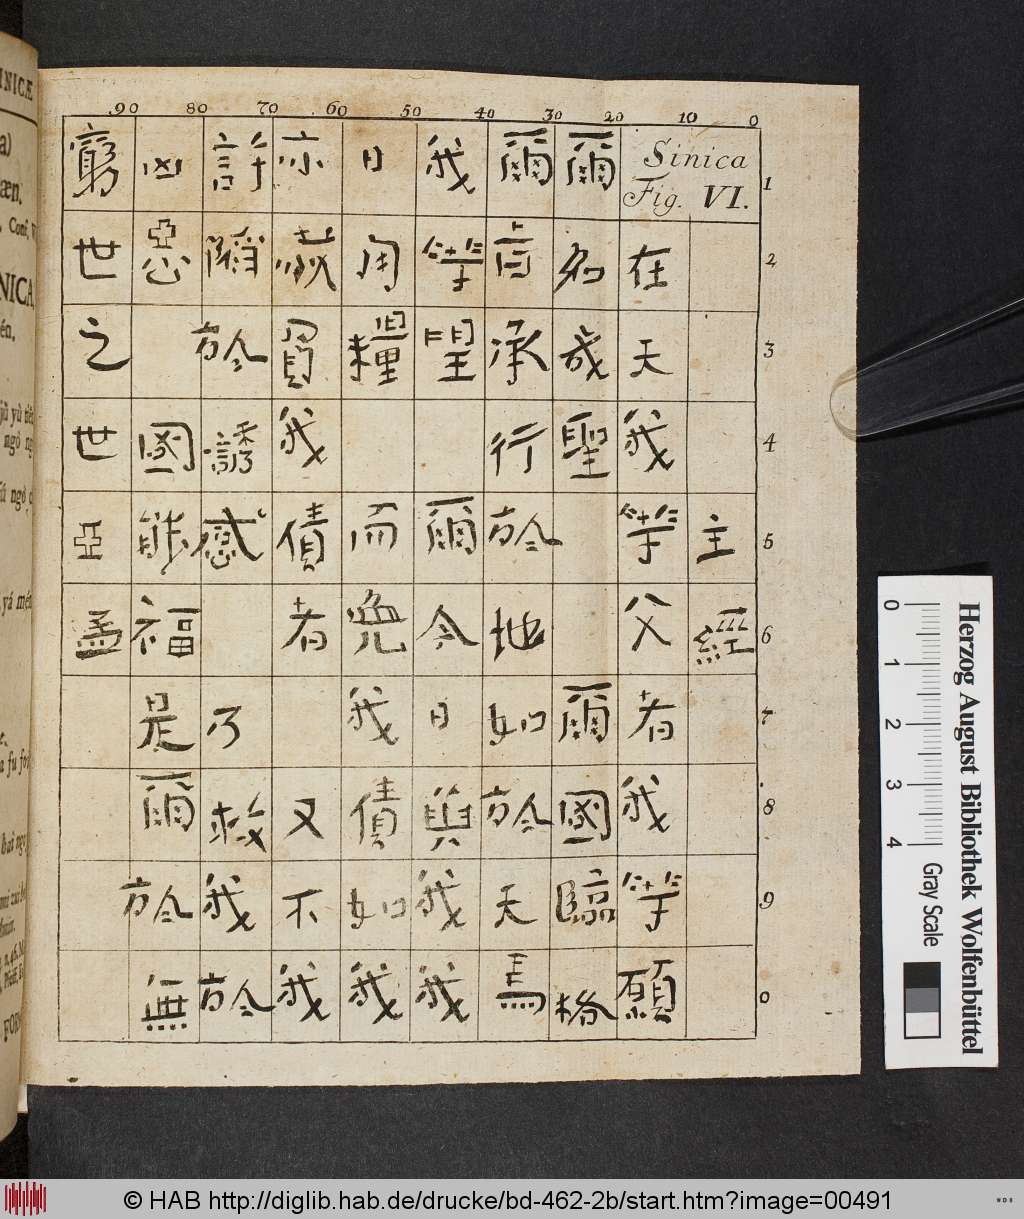 90 80 70 60 50 40 30 20 10 0
Sinica
Fig. VI.
1 2 3 4 5 6 7 8 9 0
主經
在天我等父者我等願
爾名成聖 爾國臨格
爾旨承行於地如於天焉
我等望 爾今日與我我
日用糧 而免我債如我
亦赦負我債者 又不我
許陷於誘感 乃救我於
凶惡 國能福是爾於無
窮世之世亞孟
0 1 2 3 4
Herzog August Bibliothek Wolfenbüttel
Gray Scale
© HAB http://diglib.hab.de/drucke/bd-462-2b/start.htm?image=00491